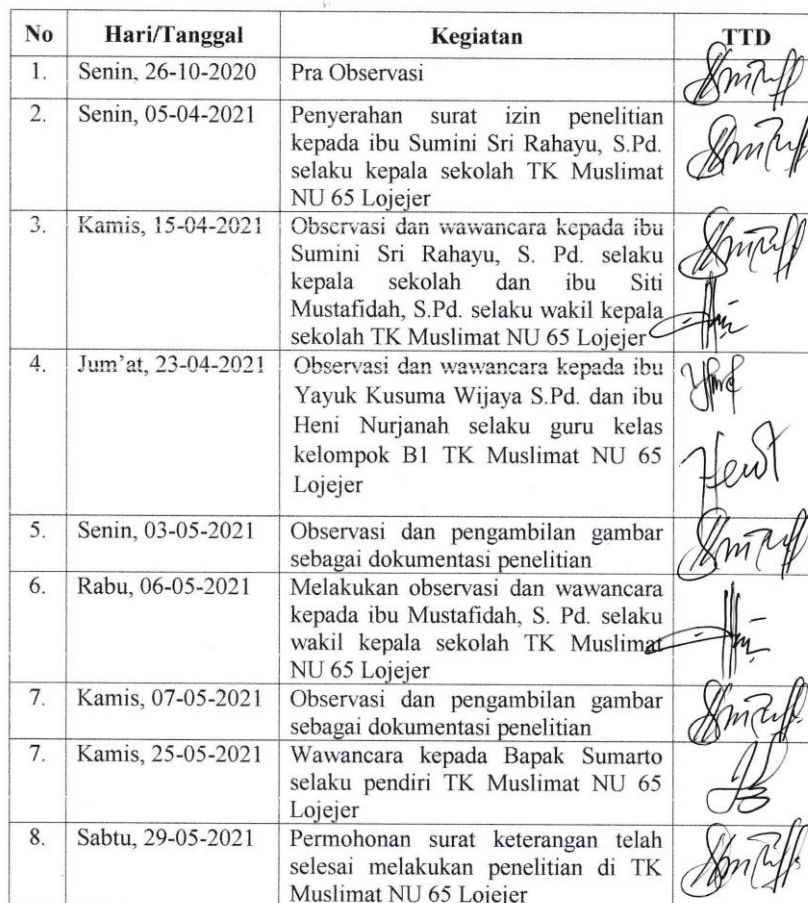 No Hari/Tanggal Kegiatan TTD
1. Senin, 26-10-2020 Pra Observasi
2. Senin, 05-04-2021 Penyerahan surat izin penelitian
kepada ibu Sumini Sri Rahayu, S.Pd.
selaku kepala sekolah TK Muslimat
NU 65 Lojejer
3. Kamis, 15-04-2021 Observasi dan wawancara kepada ibu
Sumini Sri Rahayu, S. Pd. selaku
kepala sekolah dan ibu Siti
Mustafidah, S.Pd. selaku wakil kepala
sekolah TK Muslimat NU 65 Lojejer
4. Jum'at, 23-04-2021 Observasi dan wawancara kepada ibu
Yayuk Kusuma Wijaya S.Pd. dan ibu
Heni Nurjanah selaku guru kelas
kelompok B1 TK Muslimat NU 65
Lojejer
5. Senin, 03-05-2021 Observasi dan pengambilan gambar
sebagai dokumentasi penelitian
6. Rabu, 06-05-2021 Melakukan observasi dan wawancara
kepada ibu Mustafidah, S. Pd. selaku
wakil kepala sekolah TK Muslimat
NU 65 Lojejer
7. Kamis, 07-05-2021 Observasi dan pengambilan gambar
sebagai dokumentasi penelitian
7. Kamis, 25-05-2021 Wawancara kepada Bapak Sumarto
selaku pendiri TK Muslimat NU 65
Lojejer
8. Sabtu, 29-05-2021 Permohonan surat keterangan telah
selesai melakukan penelitian di TK
Muslimat NU 65 Lojejer